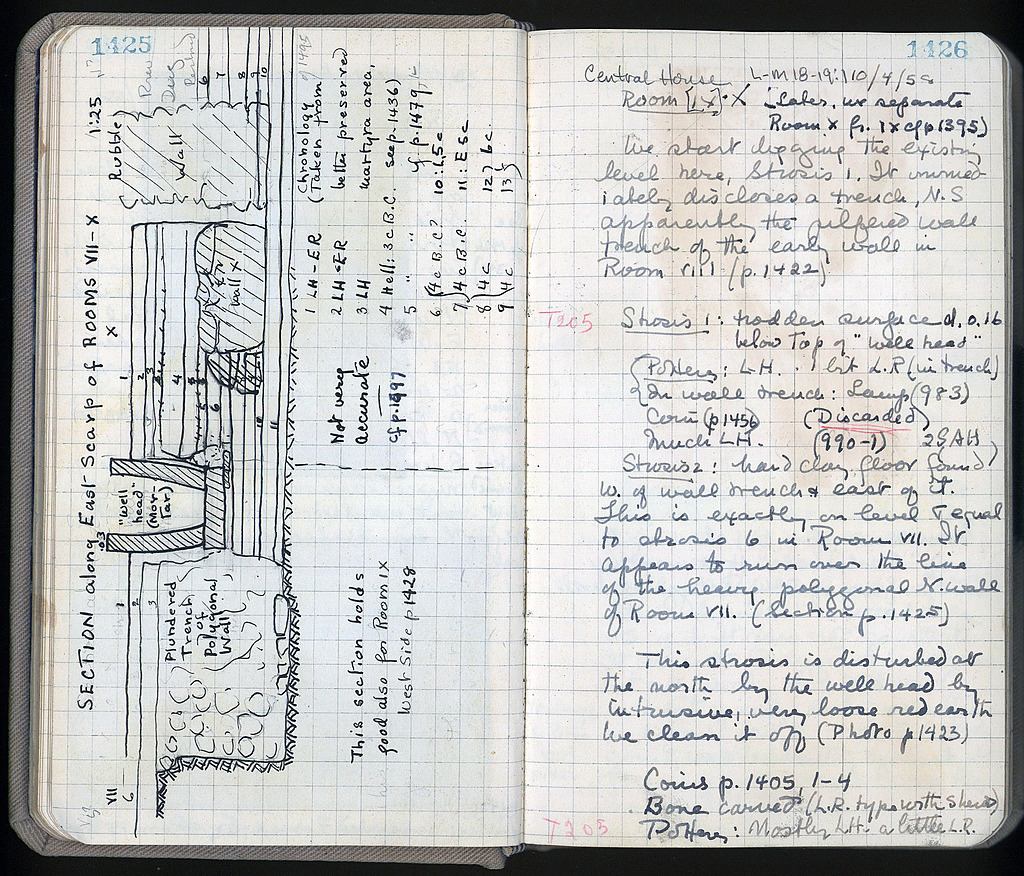 1425
SECTION along East Scarp of ROOMS VII-X
1:25
VII
X
6
1
2
3
Plundered
Trench
of
Polygonal
Wall
.03
"Well
head"
(Mor
tar)
1
2
3
4
5
6
10
11
Wall X
Rubble
Wall
6
7
8
9
10
This section holds
good also for Room IX
West Side p 1428
Not very
accurate
cf p. 1497
Chronology
(Taken from p 1495
1 LH-ER
2 LH-ER better preserved
3 LH martyra area,
4 Hell: 3c B.C. see p. 1436)
5 " " cf p. 1479
6 4c B.C.? 10: L 5c
7 4c B.C. 11: E 5c
8 4c 12) 6c.
9 4c 13)
1426
Central House L-M 18-19: 10/4/58
Room [IX]. X (Later, we separate
Room X fr. IX cf p 1395)
We start digging the existing
level here, Strosis 1. It immed-
iately discloses a trench, N.S
apparently the pilfered wall
trench of the early wall in
Room VIII (p. 1422)
T205 Strosis 1: trodden surface d. 0.16
below Top of "well head"
(Pottery: L.H. 1 bit L.R (in trench)
In wall trench: Lamp (983)
Coin (p 1456) (Discarded)
Much LH. (990-1) 2 SAH
Strosis 2: hard clay floor found
W. of wall trench & east of it.
This is exactly on level & equal
to strosis 6 in Room VII. It
appears to run over the line
of the heavy polygonal N. wall
of Room VII. (Section p. 1425)
This strosis is disturbed at
the north by the well head by
intrusive, very loose red earth
We clean it off (Photo p 1423)
Coins p. 1405, 1-4
Bone carved (L.R. type with Shield)
T205 Pottery: Mostly LH. a little L.R.